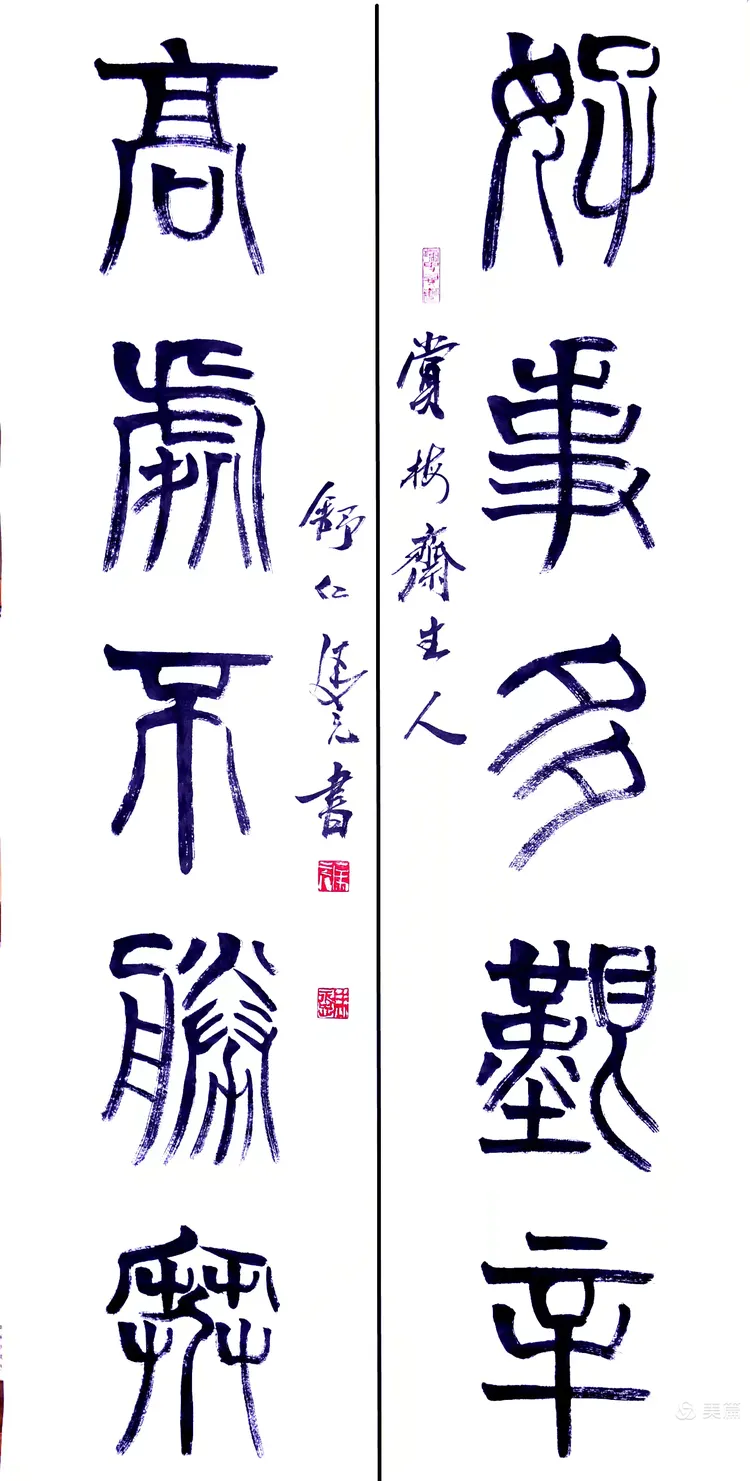 好事多艱辛
賞梅齋主人
高處不勝寒
舒仁書
美篇